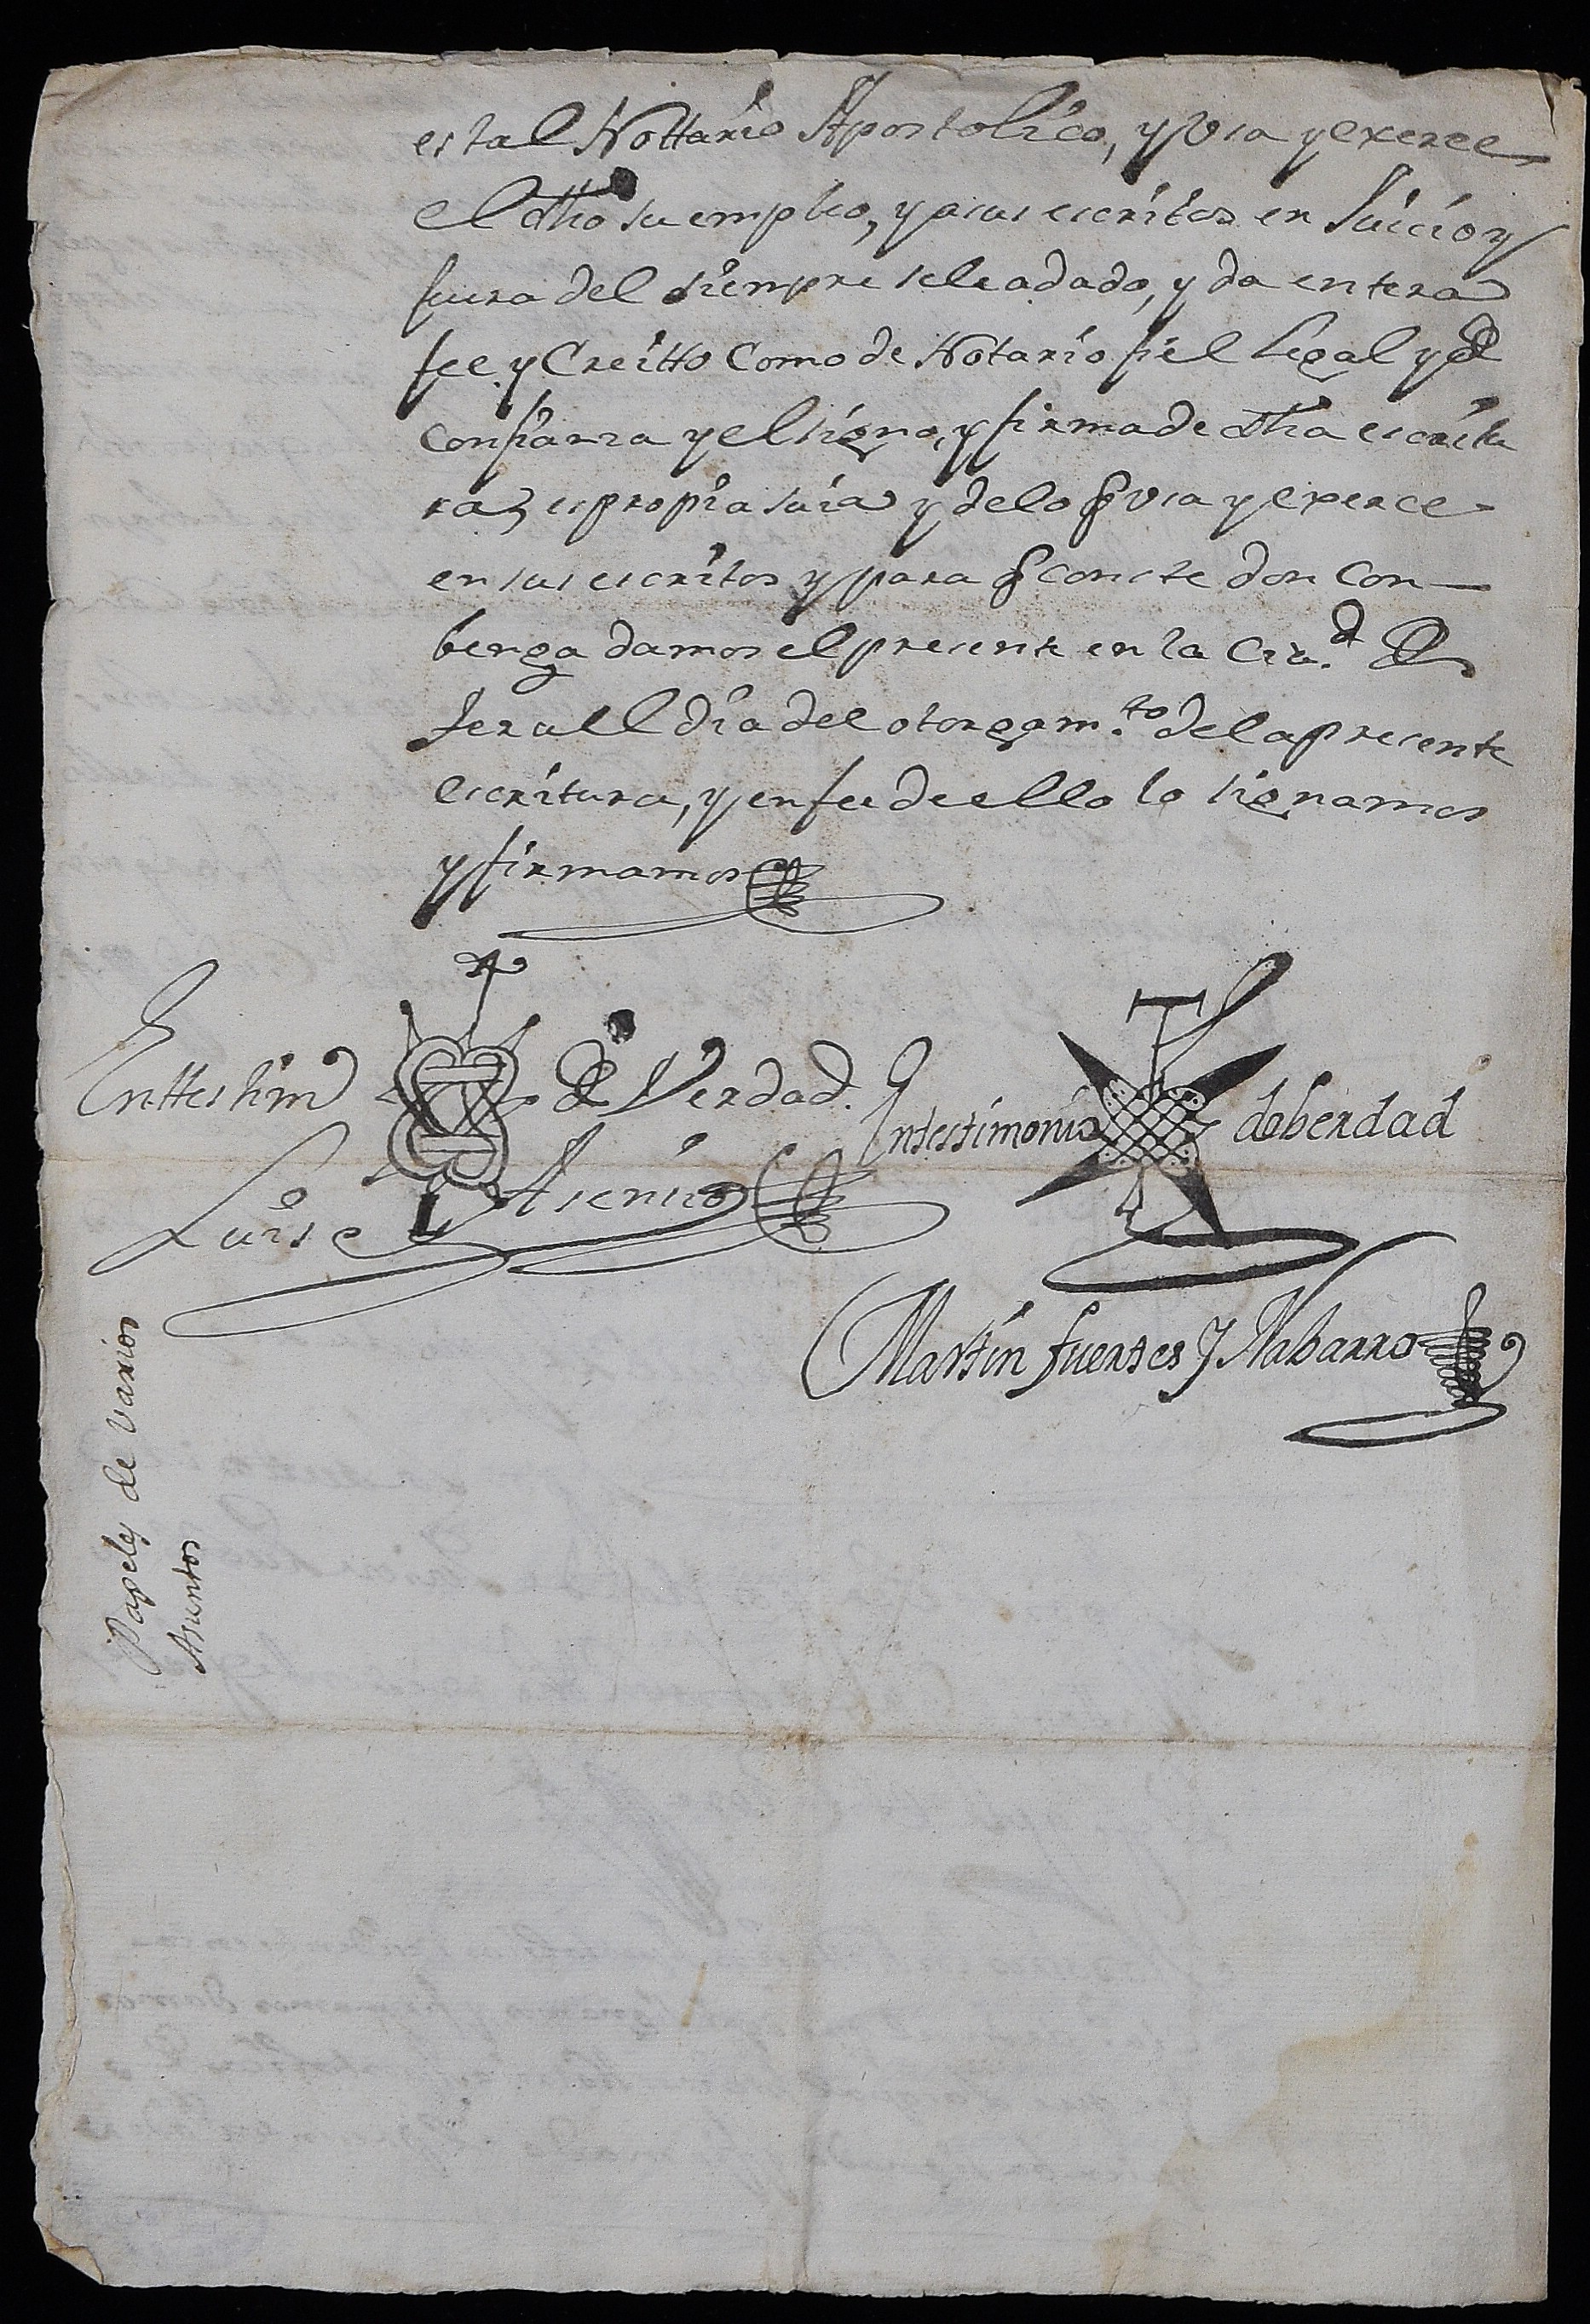 es tal Nottario Apostolico, y vsa y exerce
el dho su empleo, y a sus escritos en Juicio y
fuera del siempre se le a dado, y da entera
fee y Creitto Como de Notario fiel Legal y de
confianza y el signo, y firma de dha escritu
ra, es propia suia y de lo q vsa y exerce
en sus escritos y para q conste don con—
benga damos el presente en la Ciu.d de
Teruel el dia del otorgam.to de la presente
escritura, y en fee de ello lo signamos
y firmamos
En ttestim.o de Verdad.
Luis Asensio
En testimonio de berdad
Martin fuertes y Nabarro
Papeles de varios
Asuntos